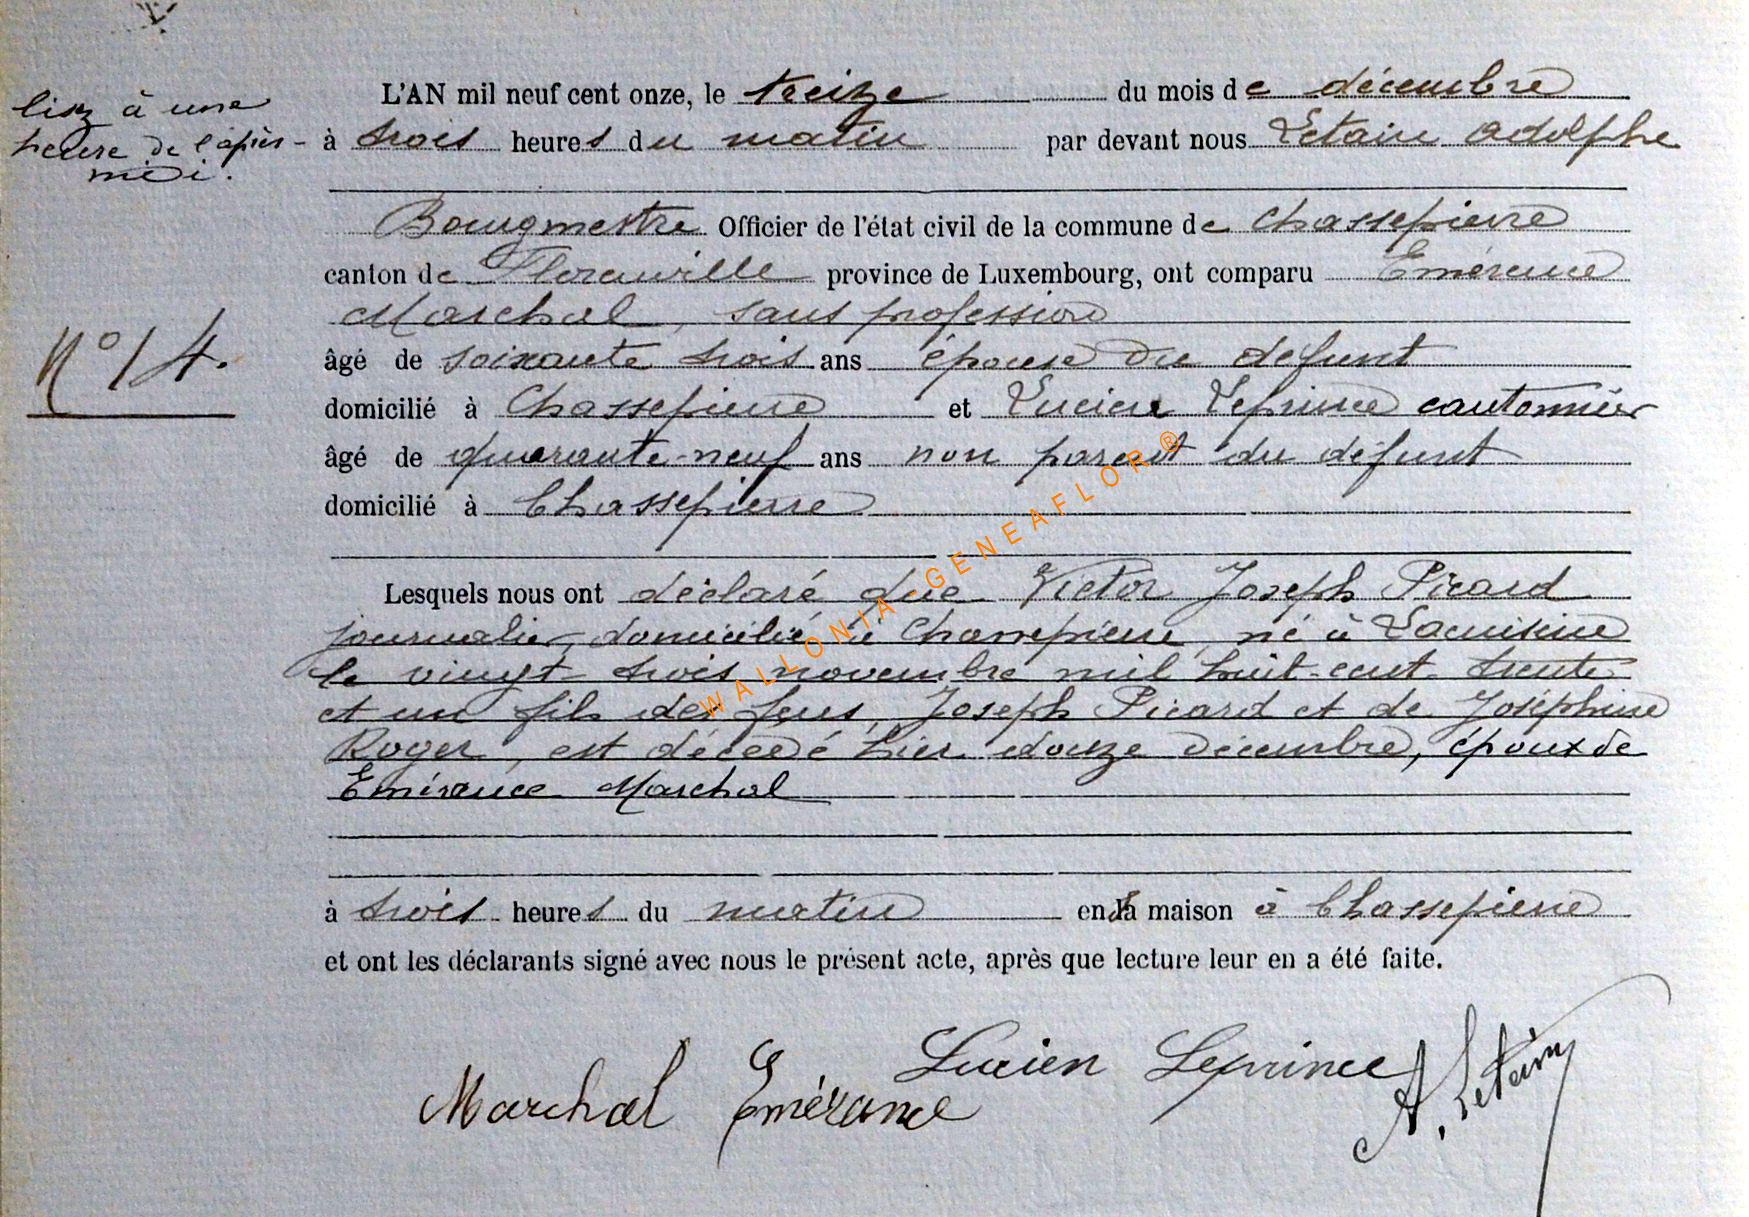 lisez à une
heure de l'après-
midi.
N° 14.
L'AN mil neuf cent onze, le treize du mois de décembre
à trois heures du matin par devant nous Letaire Adolphe
Bourgmestre Officier de l'état civil de la commune de Chassepierre
canton de Florenville province de Luxembourg, ont comparu Emérance
Marchal, sans profession
âgé de soixante trois ans épouse du défunt
domicilié à Chassepierre et Lucien Leprince cantonnier
âgé de quarante-neuf ans non parent du défunt
domicilié à Chassepierre
Lesquels nous ont déclaré que Victor Joseph Picard
journalier, domicilié à Chassepierre, né à Lacuisine
le vingt-trois novembre mil huit-cent-trente
et un fils des feus, Joseph Picard et de Joséphine
Roger, est décédé hier douze décembre, époux de
Emérance Marchal
à trois heures du matin en sa maison à Chassepierre
et ont les déclarants signé avec nous le présent acte, après que lecture leur en a été faite.
Marchal Emérance Lucien Leprince A. Letaire
WALLONIA - GENEAFLOR ®